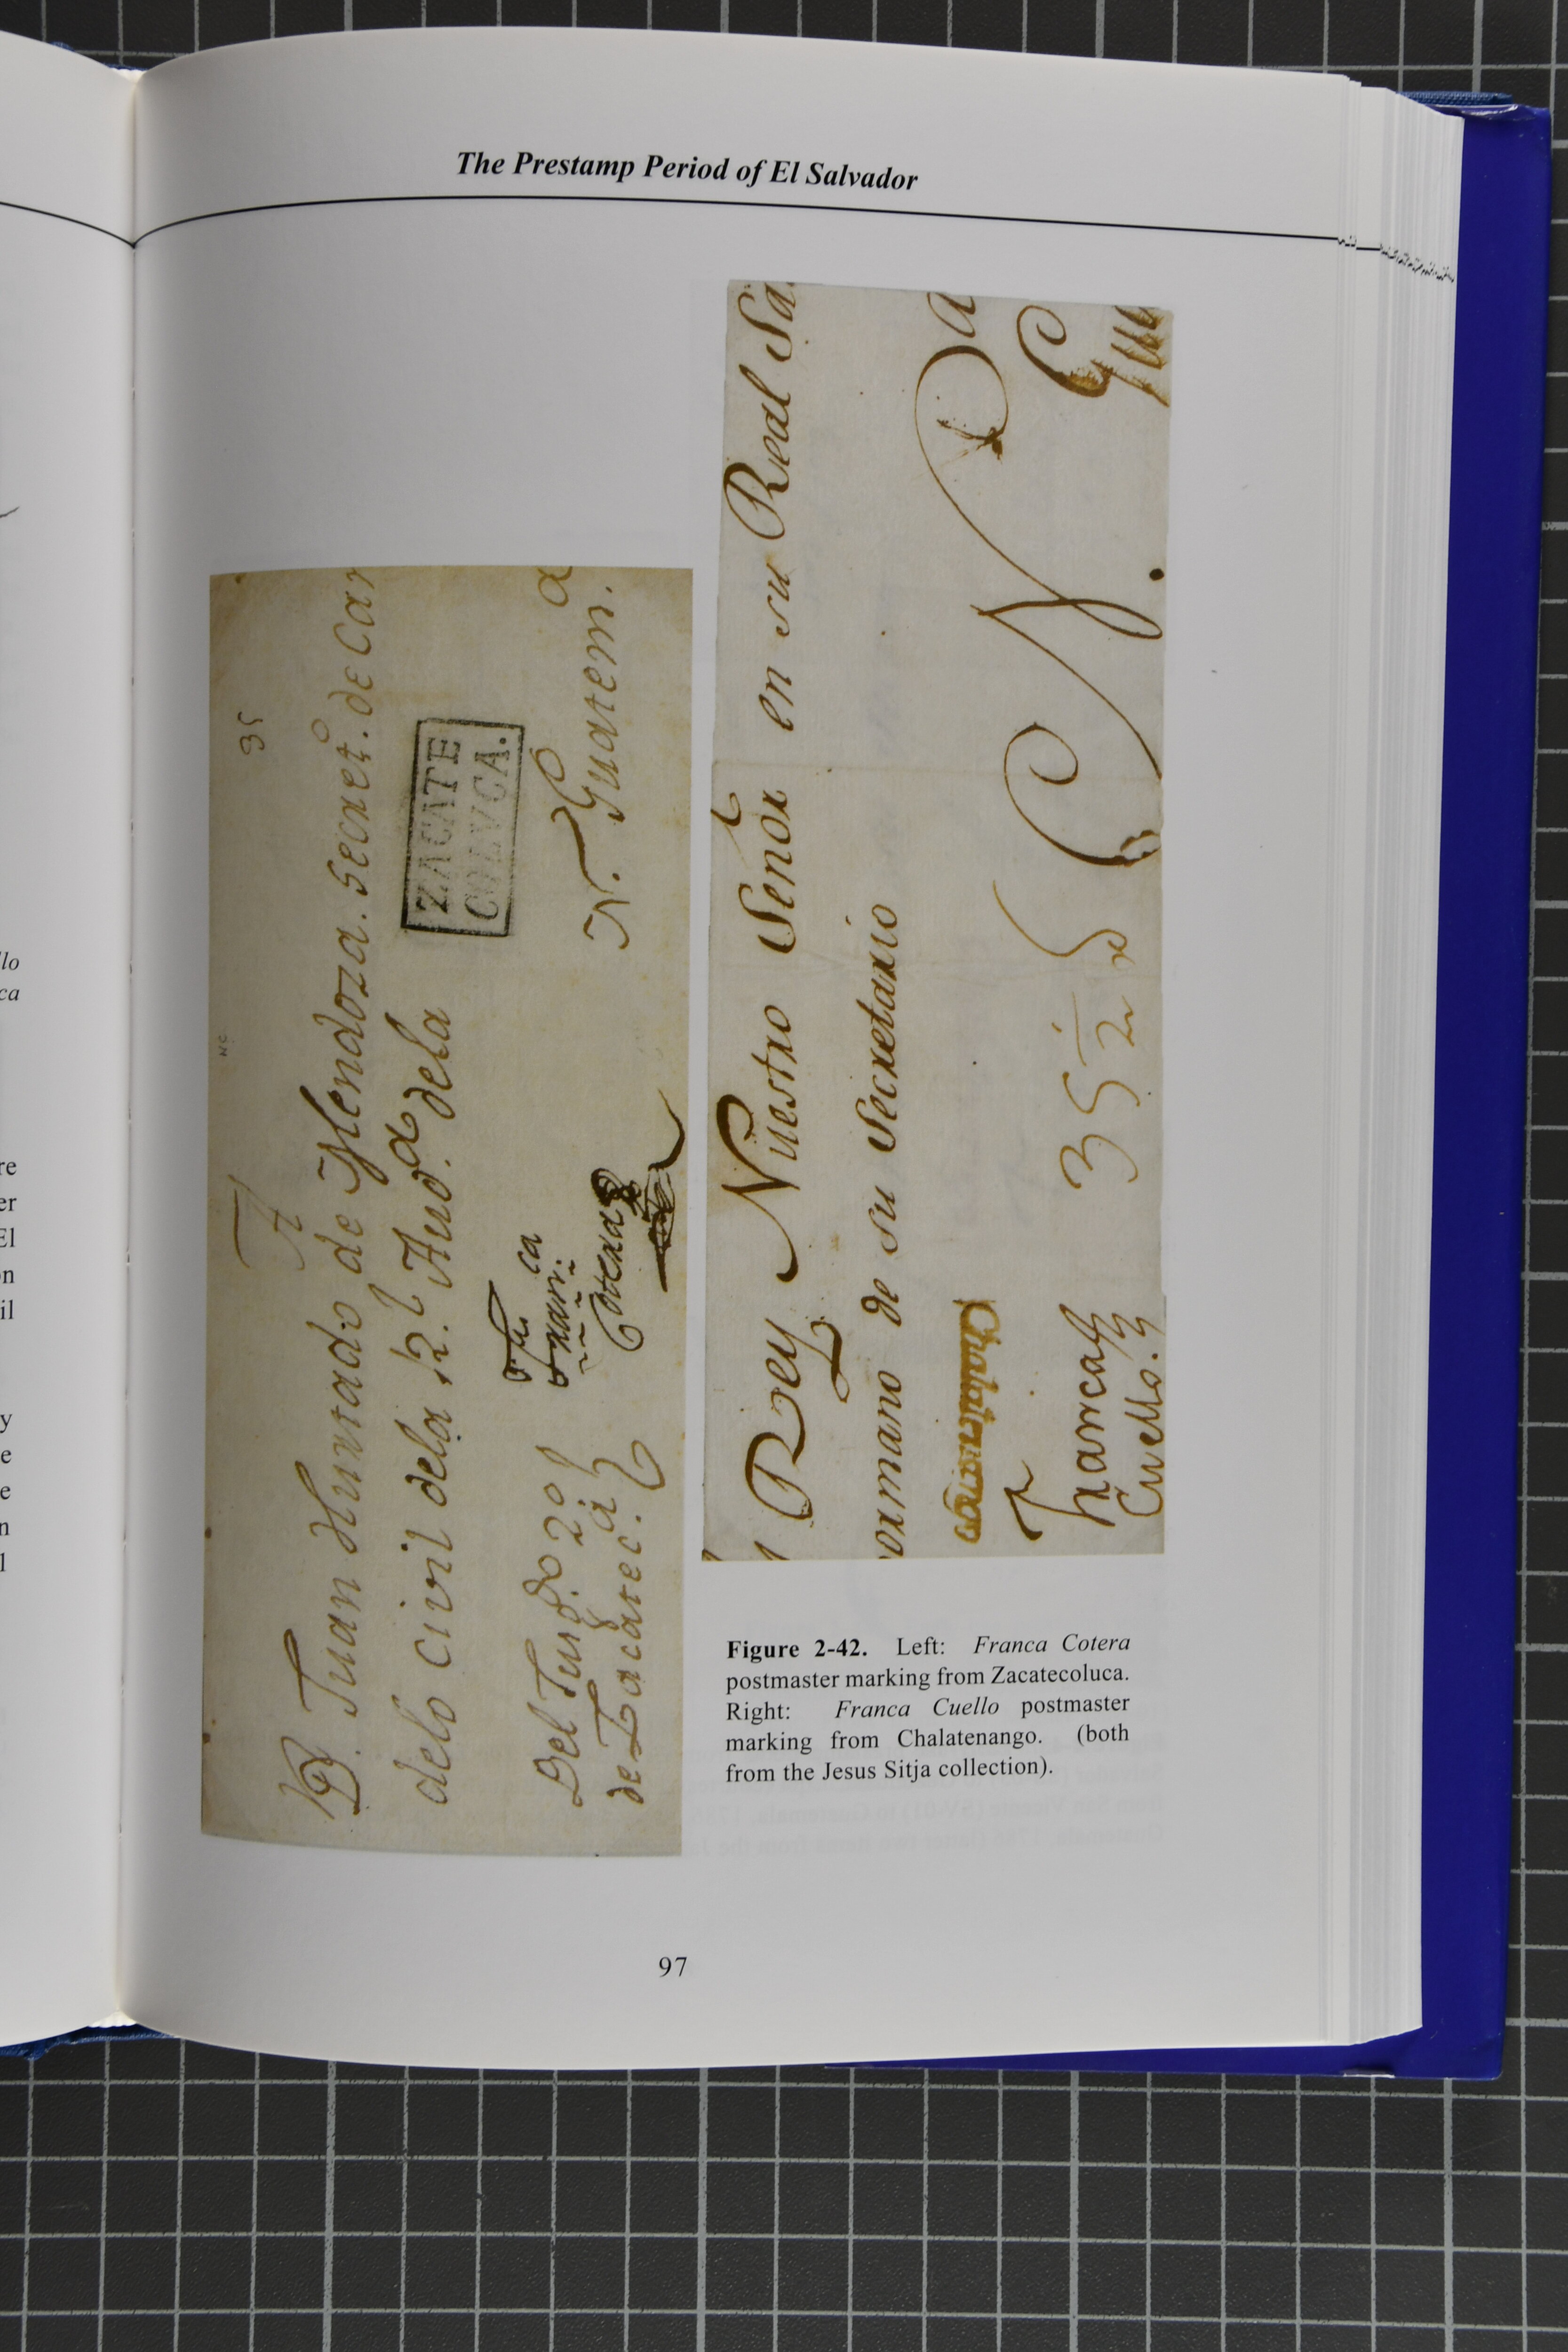 The Prestamp Period of El Salvador
35
A
D. Juan Hurtado de Mendoza. Secret.o de Car
delo civil dela R.l Aud.a dela
ZACATE
COLVCA.
Del Juzg.do 2.o
de Zacatec.a
Fran.ca
Cotera
N. Guatem.a
Rey Nuestro Señor en su Real Sa
ormano de su Secretario
Chalatenango
Franca
Cuello.
35
N.
Figure 2-42. Left: Franca Cotera
postmaster marking from Zacatecoluca.
Right: Franca Cuello postmaster
marking from Chalatenango. (both
from the Jesus Sitja collection).
97
lo
ca
re
er
El
on
il
y
e
e
n
l